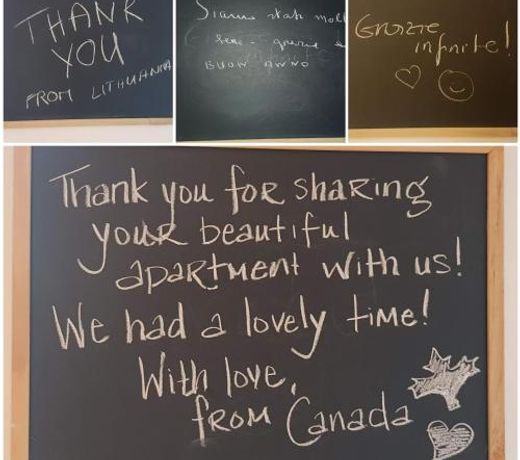 THANK
YOU
FROM LITHUANIA
Siamo stati mol
bene - grazie e
BUON ANNO
Grazie
infinite!
Thank you for sharing
your beautiful
apartment with us!
We had a lovely time!
With love,
from Canada